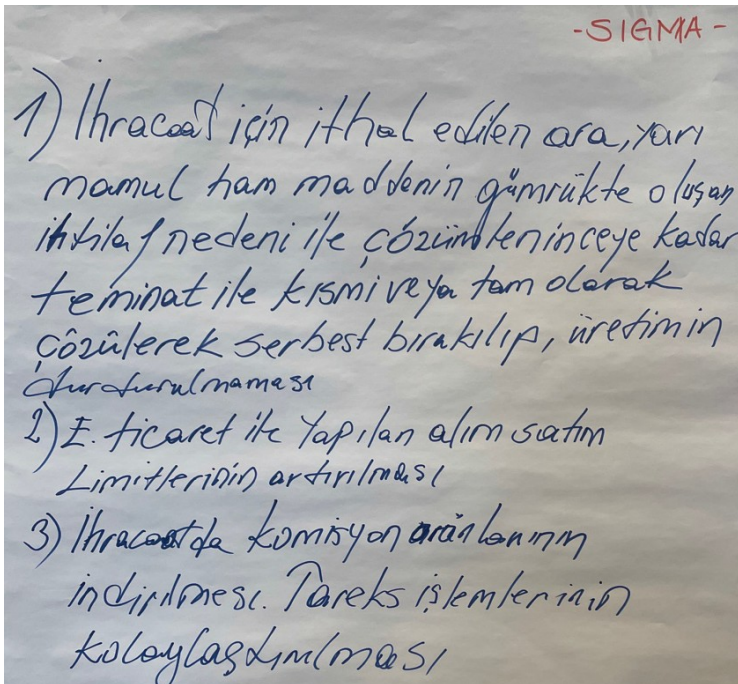 -SIGMA-
1) İhracaat için ithal edilen ara, yarı
mamul ham maddenin gümrükte oluşan
ihtilaf nedeni ile çözümleninceye kadar
teminat ile kısmi veya tam olarak
çözülerek serbest bırakılıp, üretimin
durdurulmaması
2) E. ticaret ile yapılan alım satım
Limitlerinin artırılması
3) İhracaatda komisyon oranlarının
indirilmesi. Tareks işlemlerinin
kolaylaştırılması